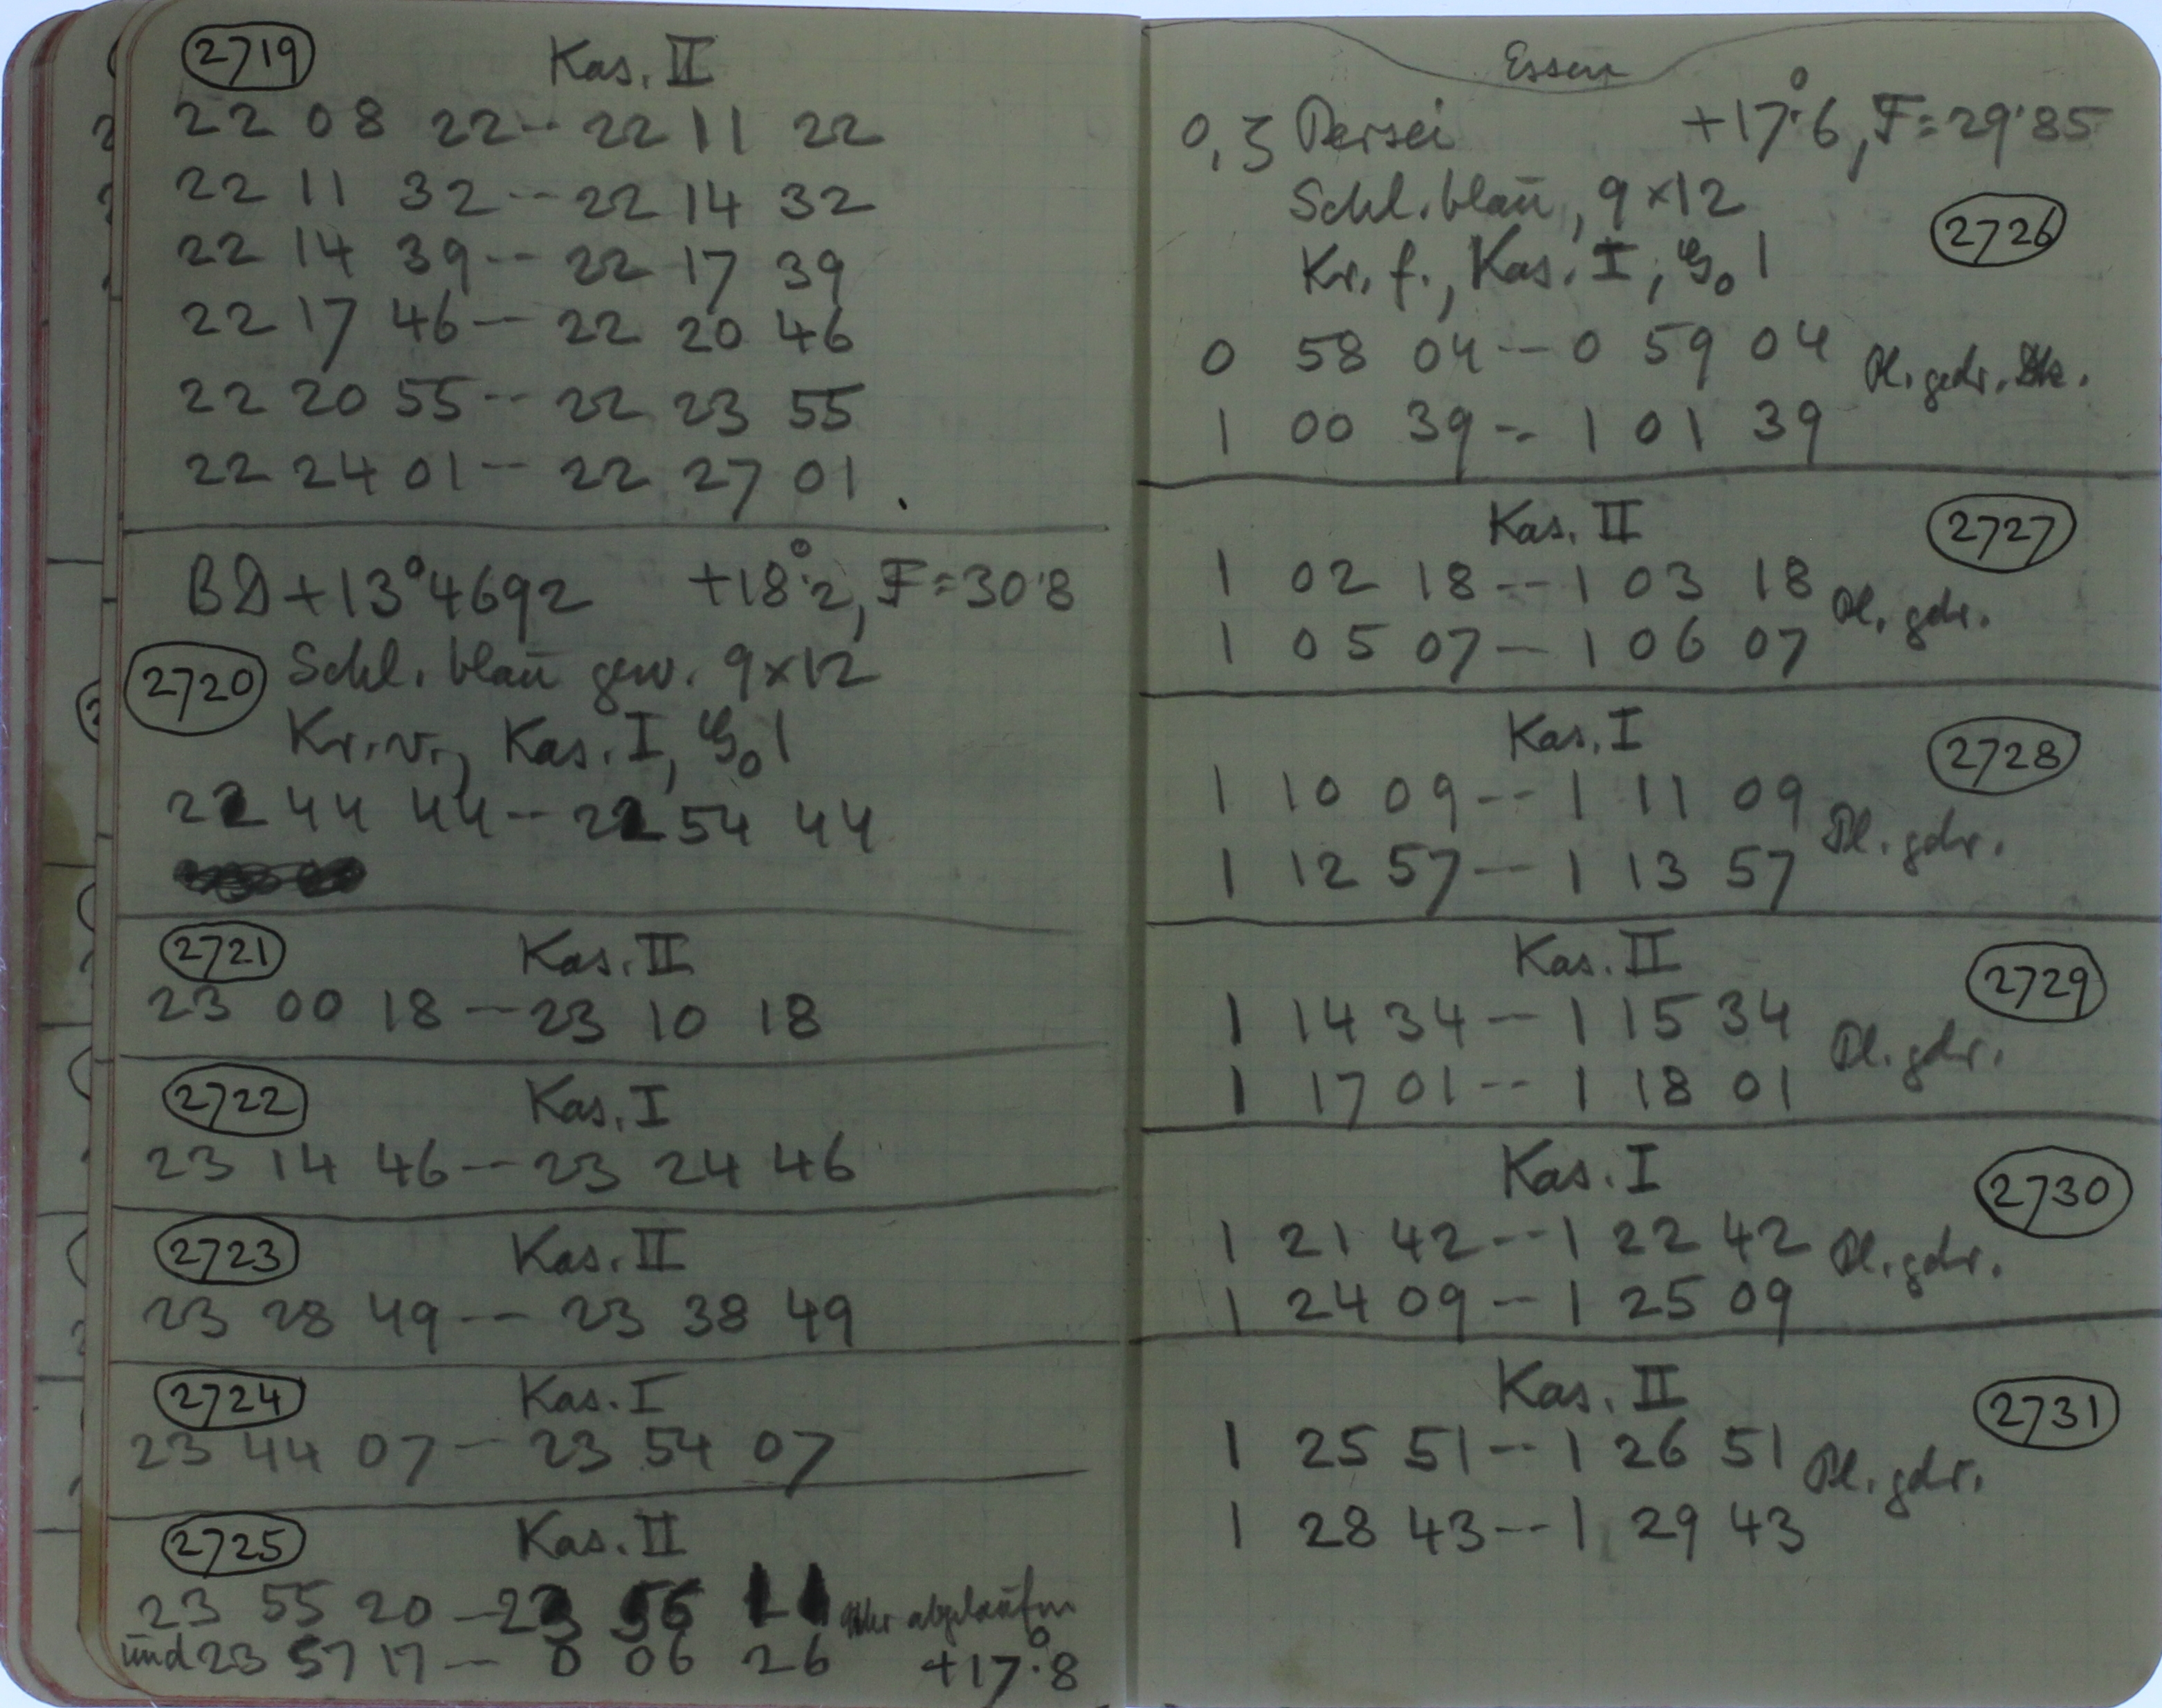 2719 Kas. II
22 08 22 -- 22 11 22
22 11 32 -- 22 14 32
22 14 39 -- 22 17 39
22 17 46 -- 22 20 46
22 20 55 -- 22 23 55
22 24 01 -- 22 27 01.
BD+13°4692 +18°.2, F=30.8
2720 Schl. blau gew. 9×12
Kr. v., Kas. I, 1
22 44 44 -- 22 54 44
2721 Kas. II
23 00 18 -- 23 10 18
2722 Kas. I
23 14 46 -- 23 24 46
2723 Kas. II
23 28 49 -- 23 38 49
2724 Kas. I
23 44 07 -- 23 54 07
2725 Kas. II
23 55 20 -- 23 56 11 Uhr abgelaufen
und 23 57 17 -- 0 06 26 +17°.8
Essen
Persei +17°.6, F=29.85
Schl. blau, 9×12
2726
Kr. f., Kas. I, 1
0 58 04 -- 0 59 04 Pl. gedr.
1 00 39 -- 1 01 39
Kas. II 2727
1 02 18 -- 1 03 18 Pl. gdr.
1 05 07 -- 1 06 07
Kas. I 2728
1 10 09 -- 1 11 09 Pl. gdr.
1 12 57 -- 1 13 57
Kas. II 2729
1 14 34 -- 1 15 34 Pl. gdr.
1 17 01 -- 1 18 01
Kas. I 2730
1 21 42 -- 1 22 42 Pl. gdr.
1 24 09 -- 1 25 09
Kas. II 2731
1 25 51 -- 1 26 51 Pl. gdr.
1 28 43 -- 1 29 43